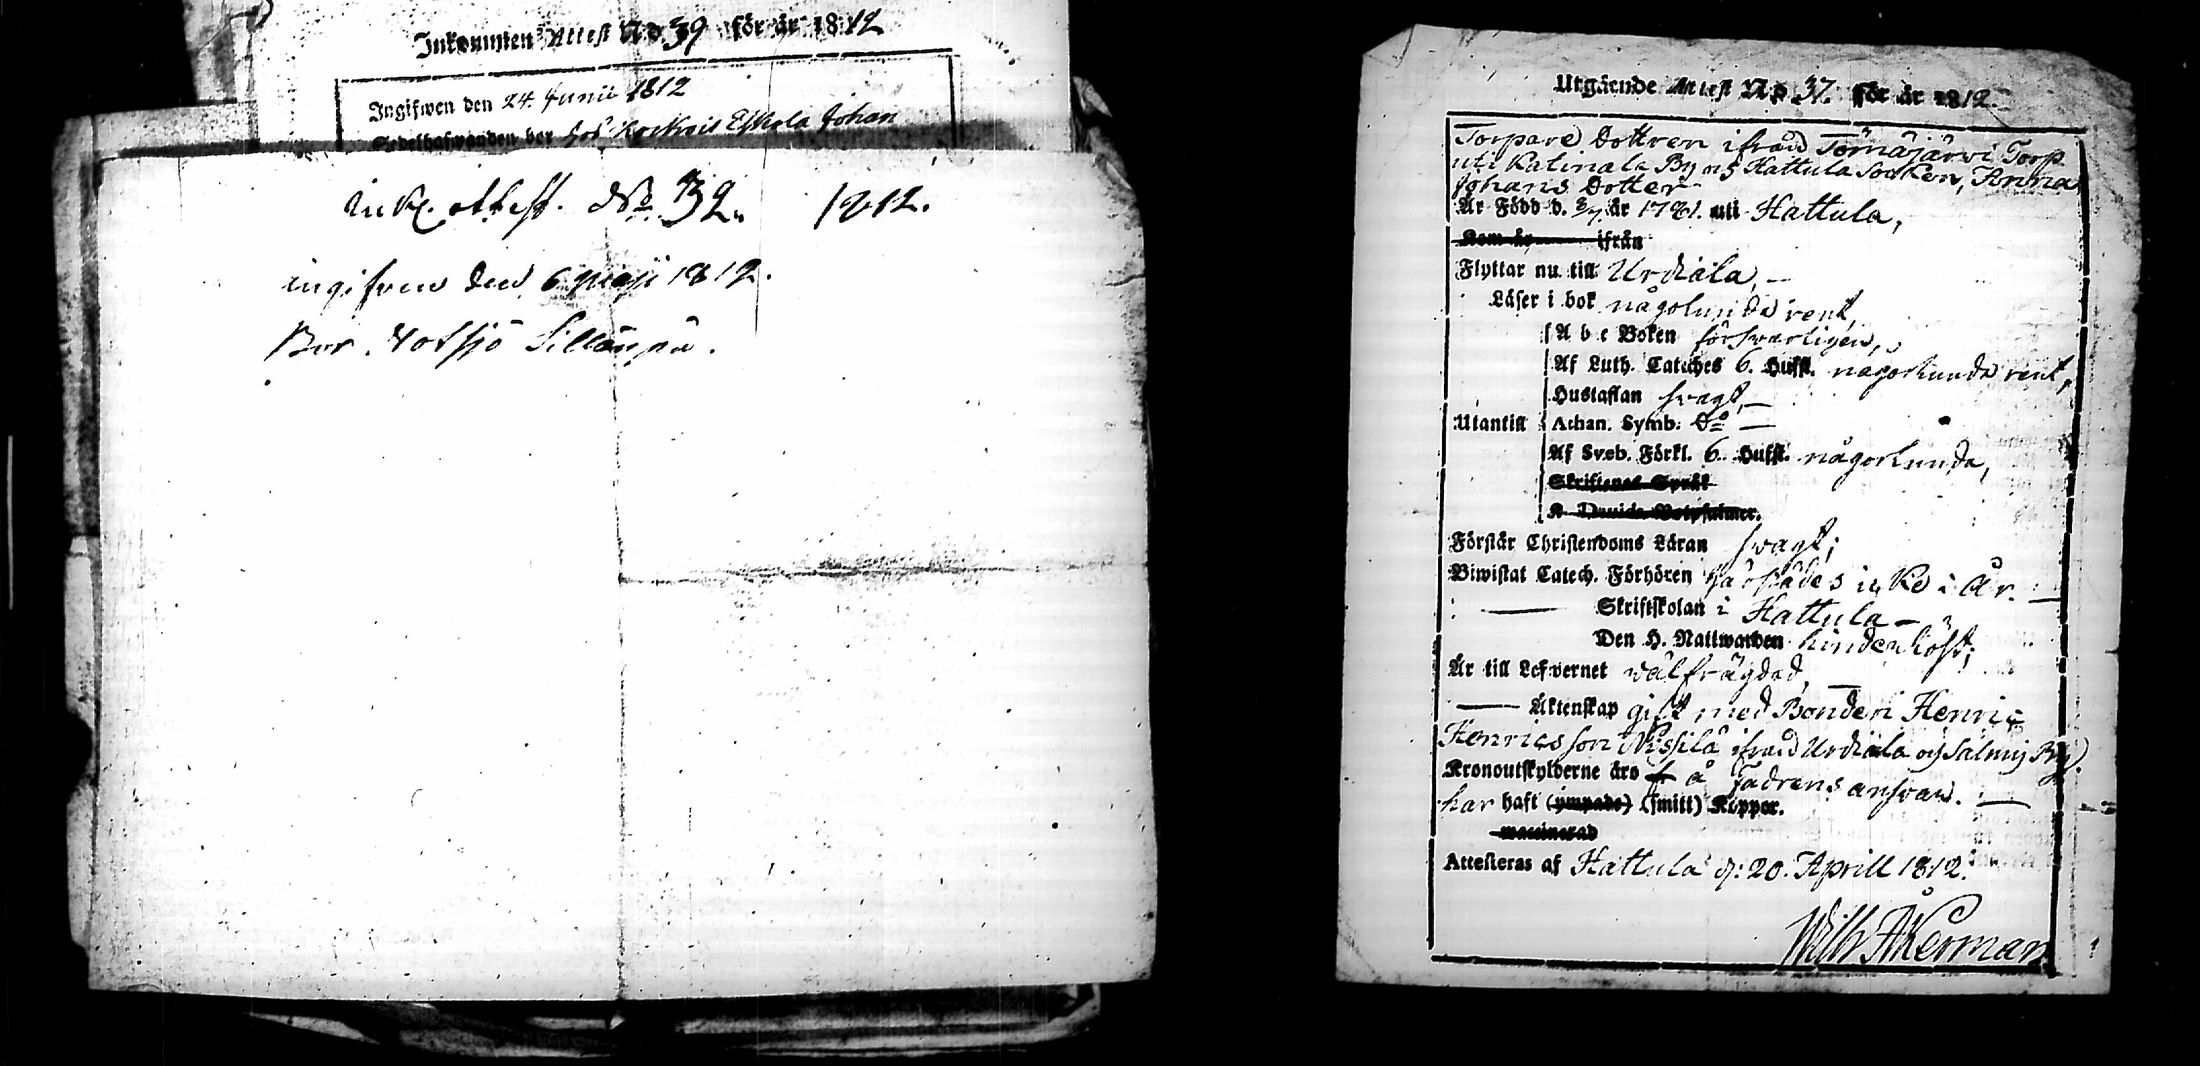 Inkommen Attest No. 39 för år 1812
Ingifwen den 24. Junii 1812
Sedelhafwanden bor hos Eskola Johan
Ink. attest. No. 32. 1812.
ingifven den 6 Maji 1812.
Bor Notsjö Sillanpä.
Utgående Attest No 37. för år 1812.
Torpare Dottren ifrån Tömäjärvi Torp
uti Katinala By och Hattula Socken, Anna
Johans Dotter
Är Född d. 3/7 år 1781. uti Hattula,
Kom år ifrån
Flyttar nu till Urdiala, —
Läser i bok någolunda rent,
A b c Boken försvarligen,
Af Luth. Cateches 6. Hufst. någorlunda rent,
Hustaflan svagt, —
Utantill Athan. Symb. Do —
Af Sveb. Förkl. 6. Hufst. någorlunda,
Skriftenes Språk
K. Davids Botpsalmer.
Förstår Christendoms Läran svagt;
Biwistat Catech. Förhören icke i År. —
— Skriftskolan i Hattula —
Den H. Nattwarden hinderlöst;
Är till Lefvernet välfrägdad,
— Äktenskap gift med Bonden Henric
Henricsson Nissilä ifrån Urdiala och Salmij By.
Kronoutskylderne äro å Fadrens ansvar. —
har haft (ympade) (smitt) Koppor.
waccinerad
Attesteras af Hattula d: 20. Aprill 1812.
Wilh Åkerman